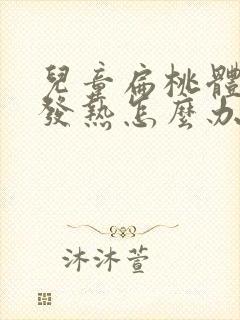 兒童扁桃體
發熱怎麼办
沐沐萱